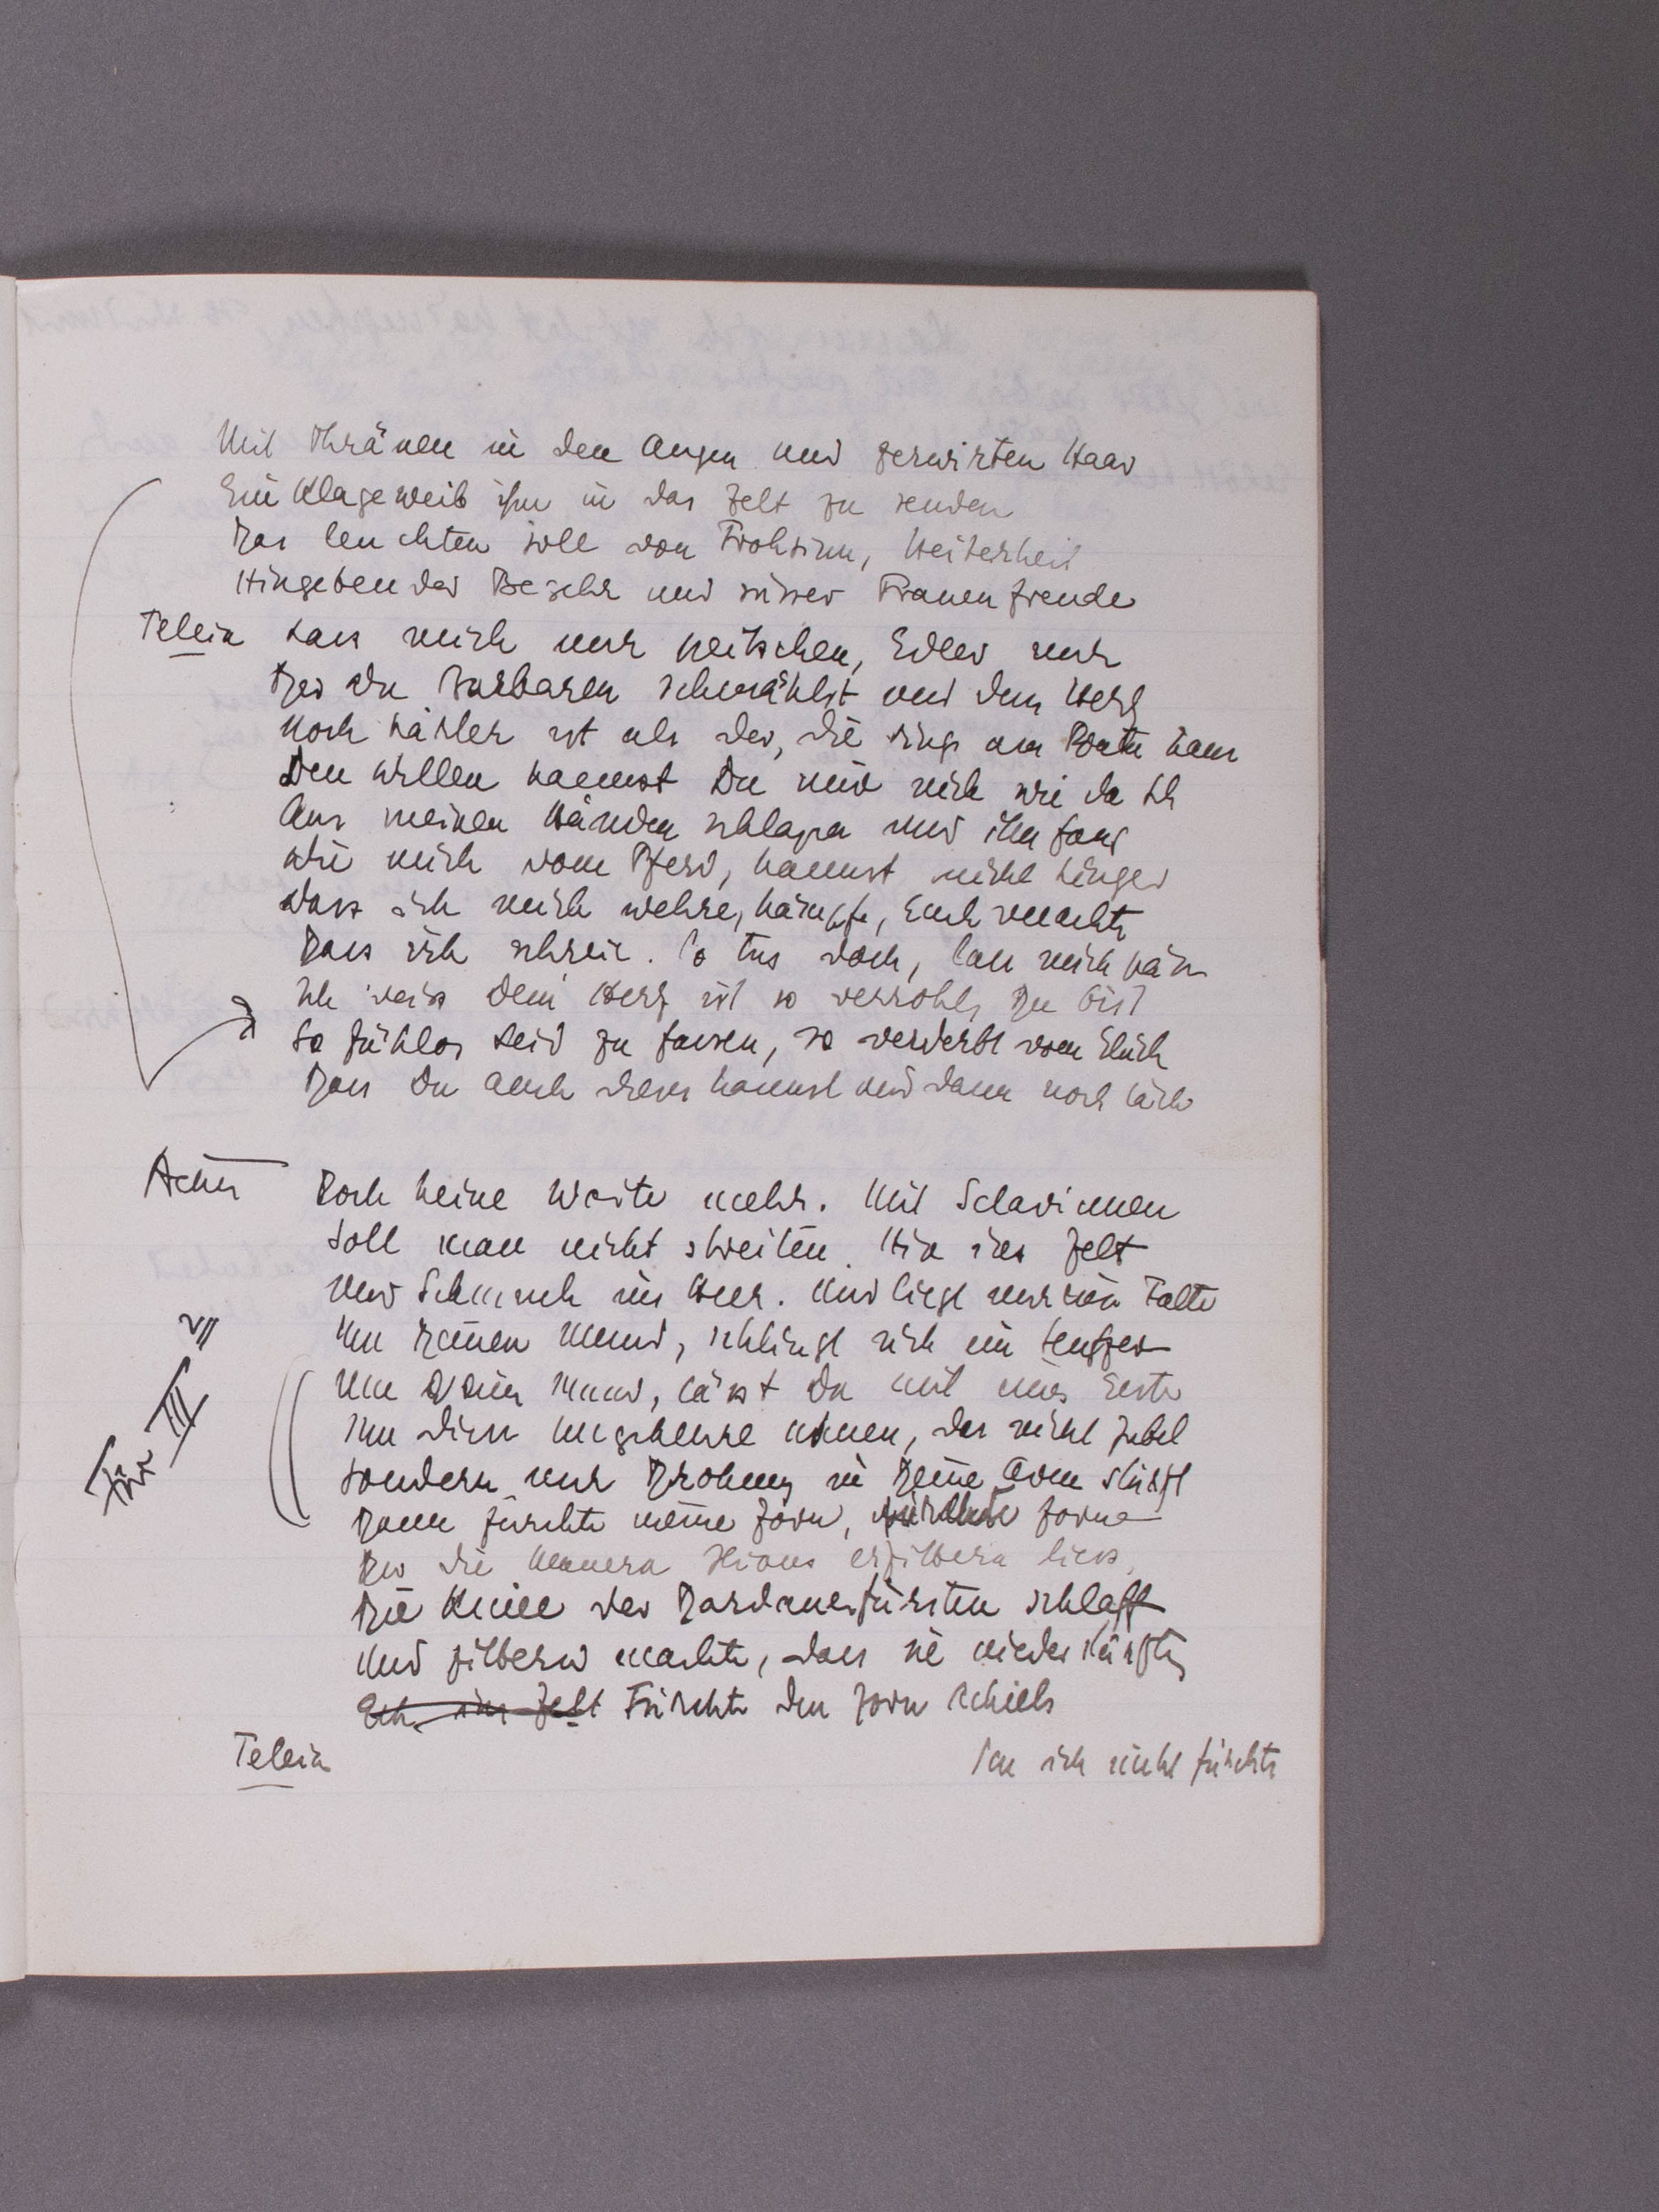 Mit Thränen in den Augen und zerwirten Haar
Ein Klageweib ihm in das Zelt zu senden
Das leuchten soll von Frohsinn, Heiterheit
Hingebender Begehr und süsser Frauenfreude
Teleia Lass mich nur peitschen, Edler nur
Der du Barbaren schmähst und dem Herz
Noch härter ist als der, die rings am
Den Willen kannst Du mir nicht wie da
Aus meinen Händen schlagen und ihn
Wie mich vom Pferd, kannst nicht hinger
dass ich mich wehre, kämpfe, Euch verachte
Dass ich schreie. So tus doch, lass mich
Ich weiss Dein Herz ist so verroht, Du bist
So fühllos Leid zu fassen, so verderbt vom Glück
Dass Du auch dieses kannst und dann noch
Achill Doch keine Worte mehr. Mit Sclavinnen
Soll man nicht streiten. Hin ins Zelt
Und Schmuck ins Haar. Und liegt nur eine Falte
Um Deinen Mund, schlingt sich ein Seufzer
Um Deinen Mund, lässt Du mit einer Geste
Ihn dies ahnen, das nicht Jubel
Sondern nur Drohung in Deine Arme stürzt
Dann fürchte meinen Zorn, Zorn
Der die Mauern Ilions erzittern liess,
Die Kniee der Dardanerfürsten schlaff
Und zitternd machte, dass sie niederstürzten
Geh ins Zelt Fürchte den Zorn Achills
Teleia Den ich nicht fürchte
Für III VII